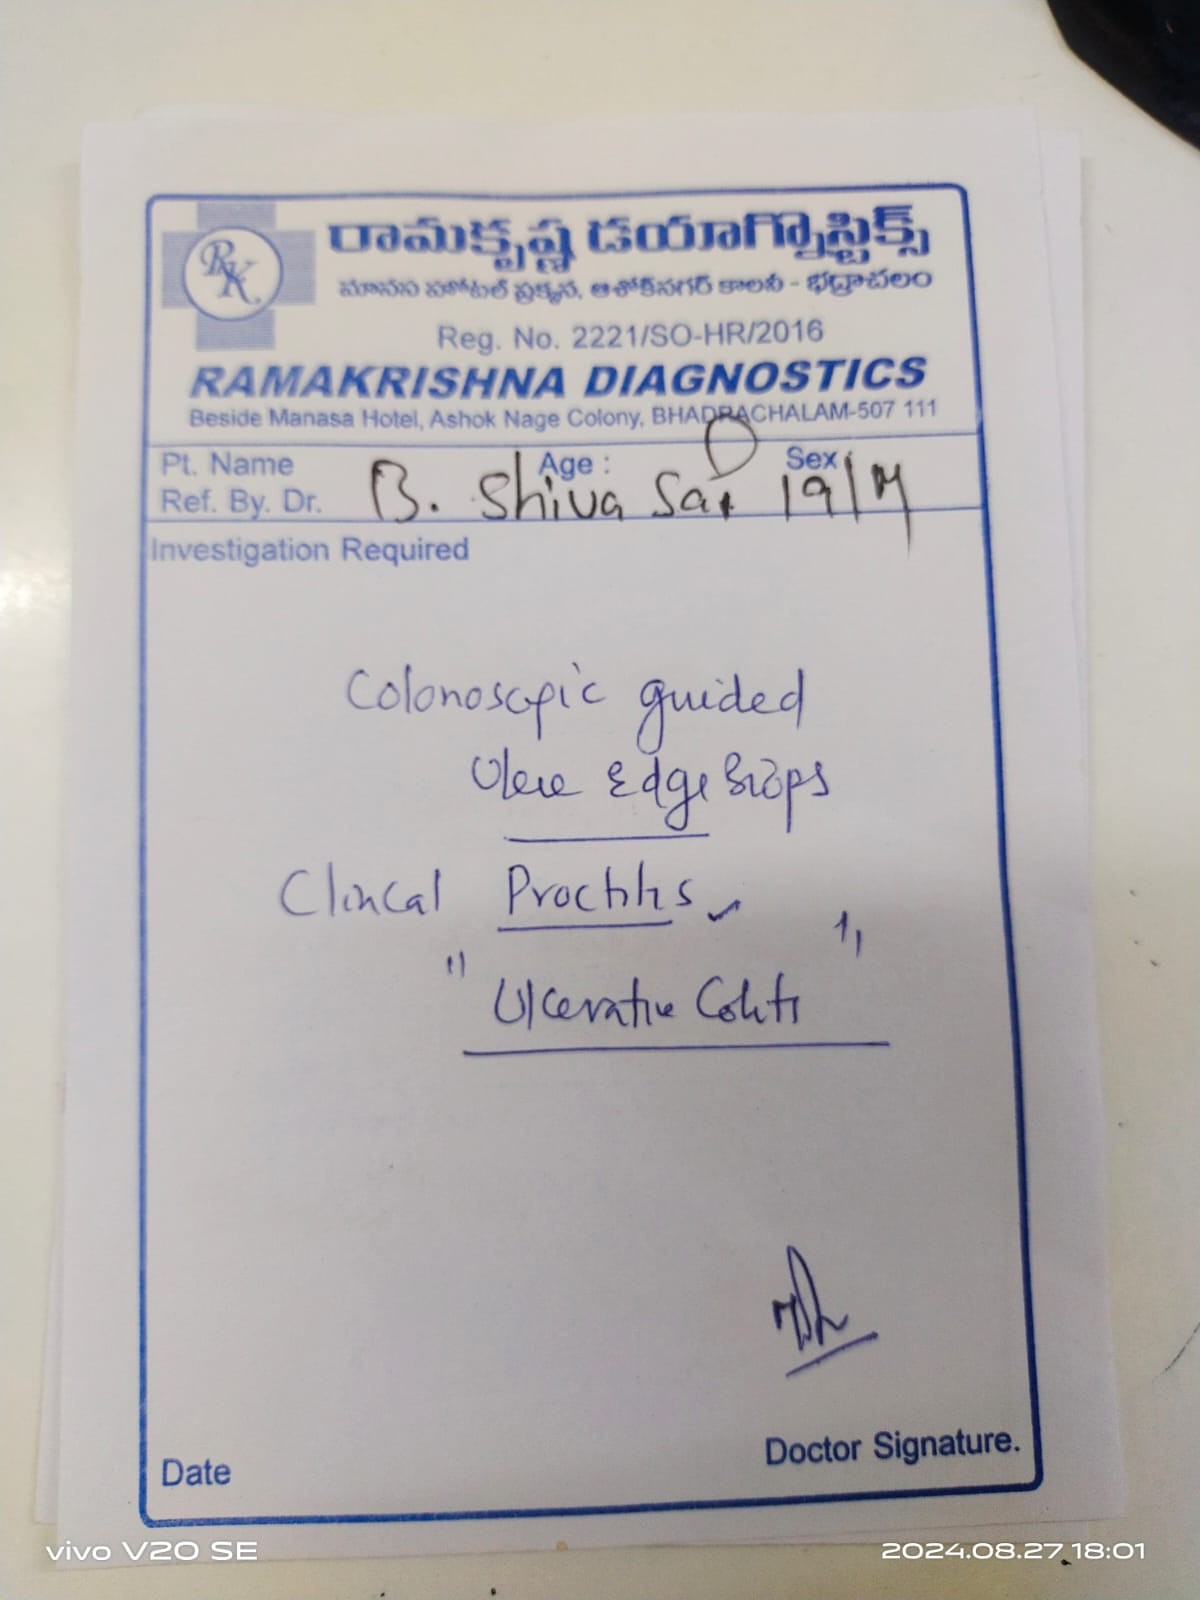 రామకృష్ణ డయాగ్నొస్టిక్స్
మానస హోటల్ ప్రక్కన, ఆశోక్‌నగర్ కాలనీ - భద్రాచలం
RK
Reg. No. 2221/SO-HR/2016
RAMAKRISHNA DIAGNOSTICS
Beside Manasa Hotel, Ashok Nage Colony, BHADRACHALAM-507 111
Pt. Name Age : Sex
Ref. By. Dr. B. Shiva Sai 19/M
Investigation Required
Colonoscopic guided
Edge
Clincal Proctitis
" Ulcerative Colitis "
Date
Doctor Signature.
vivo V20 SE
2024.08.27 18:01